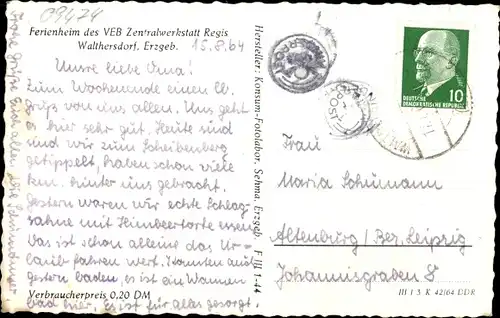 09474
Ferienheim des VEB Zentralwerkstatt Regis
Walthersdorf, Erzgeb.
15.8.64
Unsre liebe Oma!
Zum Wochenende einen lb.
Gruß von uns allen. Uns geht
es hier sehr gut. Heute sind
sind wir zum Scheibenberg
getippelt, haben schon viele
km. hinter uns gebracht.
Gestern waren wir echte Schlag-
sahne mit Himbeertorte essen
Das ist schon alleine das Ur-
laub fahren wert. Konnten auch
gestern baden, es ist ein Wannen
bad hier. Es ist für alles gesorgt.
Verbraucherpreis 0,20 DM
Hersteller: Konsum-Fotolabor, Sehma, Erzgeb. F III T-44
10
DEUTSCHE
DEMOKRATISCHE REPUBLIK
Frau
Maria Schümann
Altenburg / Bez. Leipzig
Johannisgraben 8
III 1 5 K 42/64 DDR